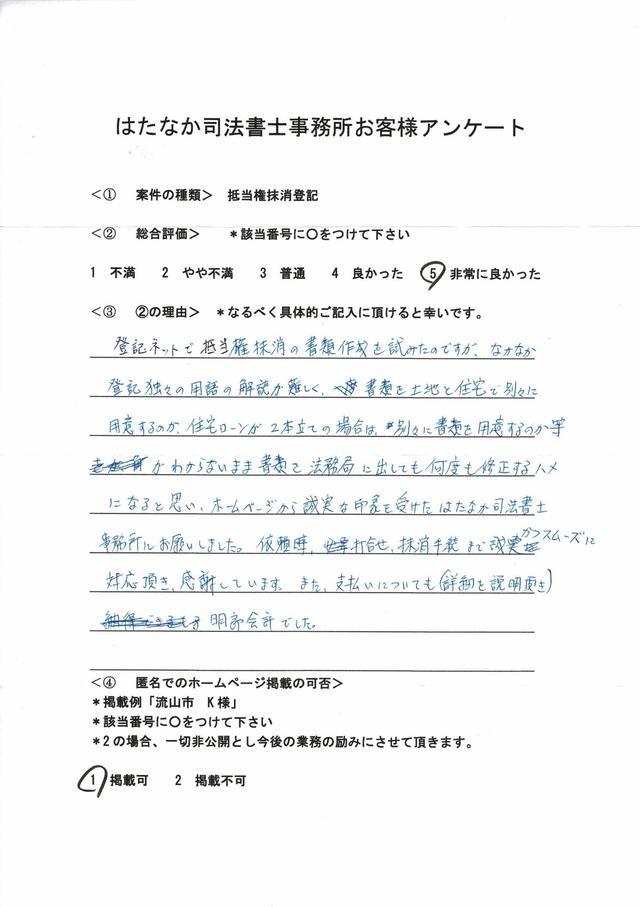 はたなか司法書士事務所お客様アンケート
＜① 案件の種類＞ 抵当権抹消登記
＜② 総合評価＞ ＊該当番号に○をつけて下さい
1 不満 2 やや不満 3 普通 4 良かった 5 非常に良かった
＜③ ②の理由＞ ＊なるべく具体的ご記入に頂けると幸いです。
登記ネットで抵当権抹消の書類作成を試みたのですが、なかなか
登記独々の用語の解説が難しく、書類を土地と住宅で別々に
用意するのか、住宅ローンが2本立ての場合は、別々に書類を用意するのか等
がわからないまま書類を法務局に出しても何度も修正するハメ
になると思い、ホームページから誠実な印象を受けたはたなか司法書士
事務所にお願いしました。依頼時、打合せ、抹消手続まで誠実かつスムーズに
対応頂き、感謝しています。また、支払いについても(詳細を説明頂き)
明朗会計でした。
＜④ 匿名でのホームページ掲載の可否＞
＊掲載例「流山市 K様」
＊該当番号に○をつけて下さい
＊2の場合、一切非公開とし今後の業務の励みにさせて頂きます。
1 掲載可 2 掲載不可